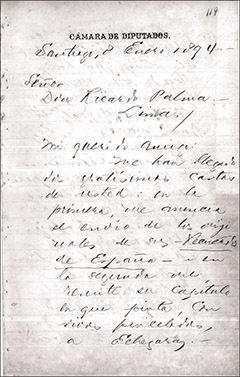 114
CÁMARA DE DIPUTADOS.
Santiago, 8 Enero 1894
Señor
Don Ricardo Palma.—
Lima./
Mi querido amigo:
Me han llegado
dos gratísimas cartas
de usted: en la
primera me anuncia
el envío de los origi
nales de sus Recuerdos
de España— i en
la segunda me
remite su capítulo
en que pinta, con
vivas pinceladas,
a Echegaray.—